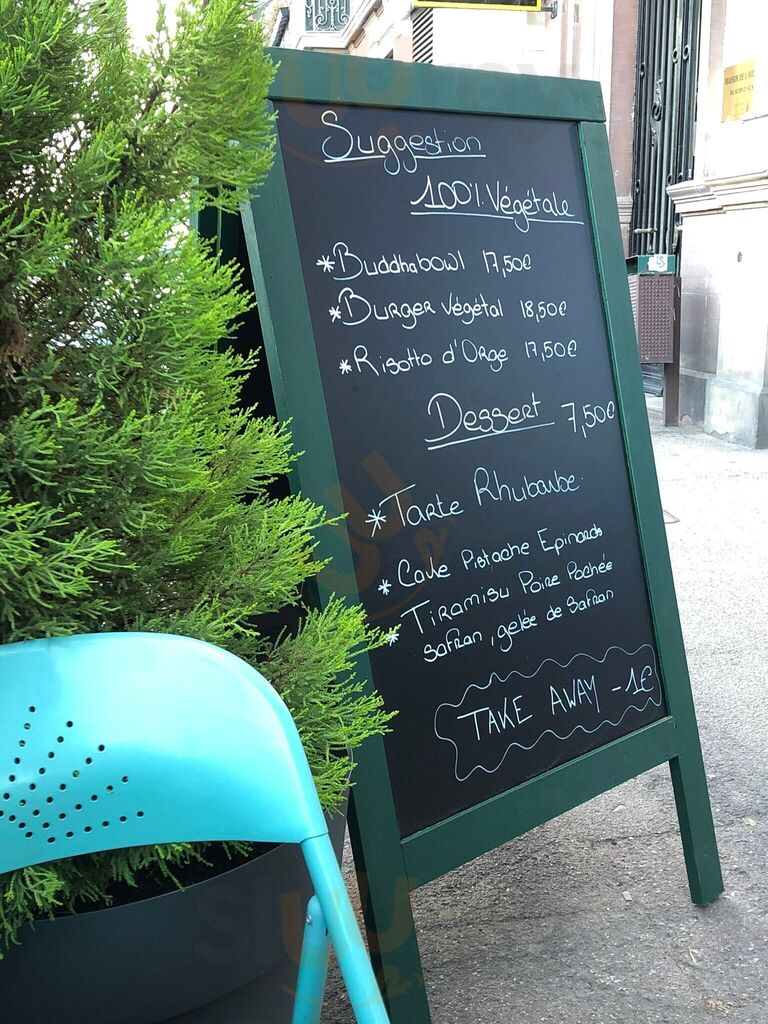 Suggestion
100% Végétale
* Buddhabowl 17,50€
* Burger végétal 18,50€
* Risotto d'Orge 17,50€
Dessert 7,50€
* Tarte Rhubarbe.
* Cake Pistache Epinards
* Tiramisu Poire Pochée
safran, gelée de Safran
TAKE AWAY -1€